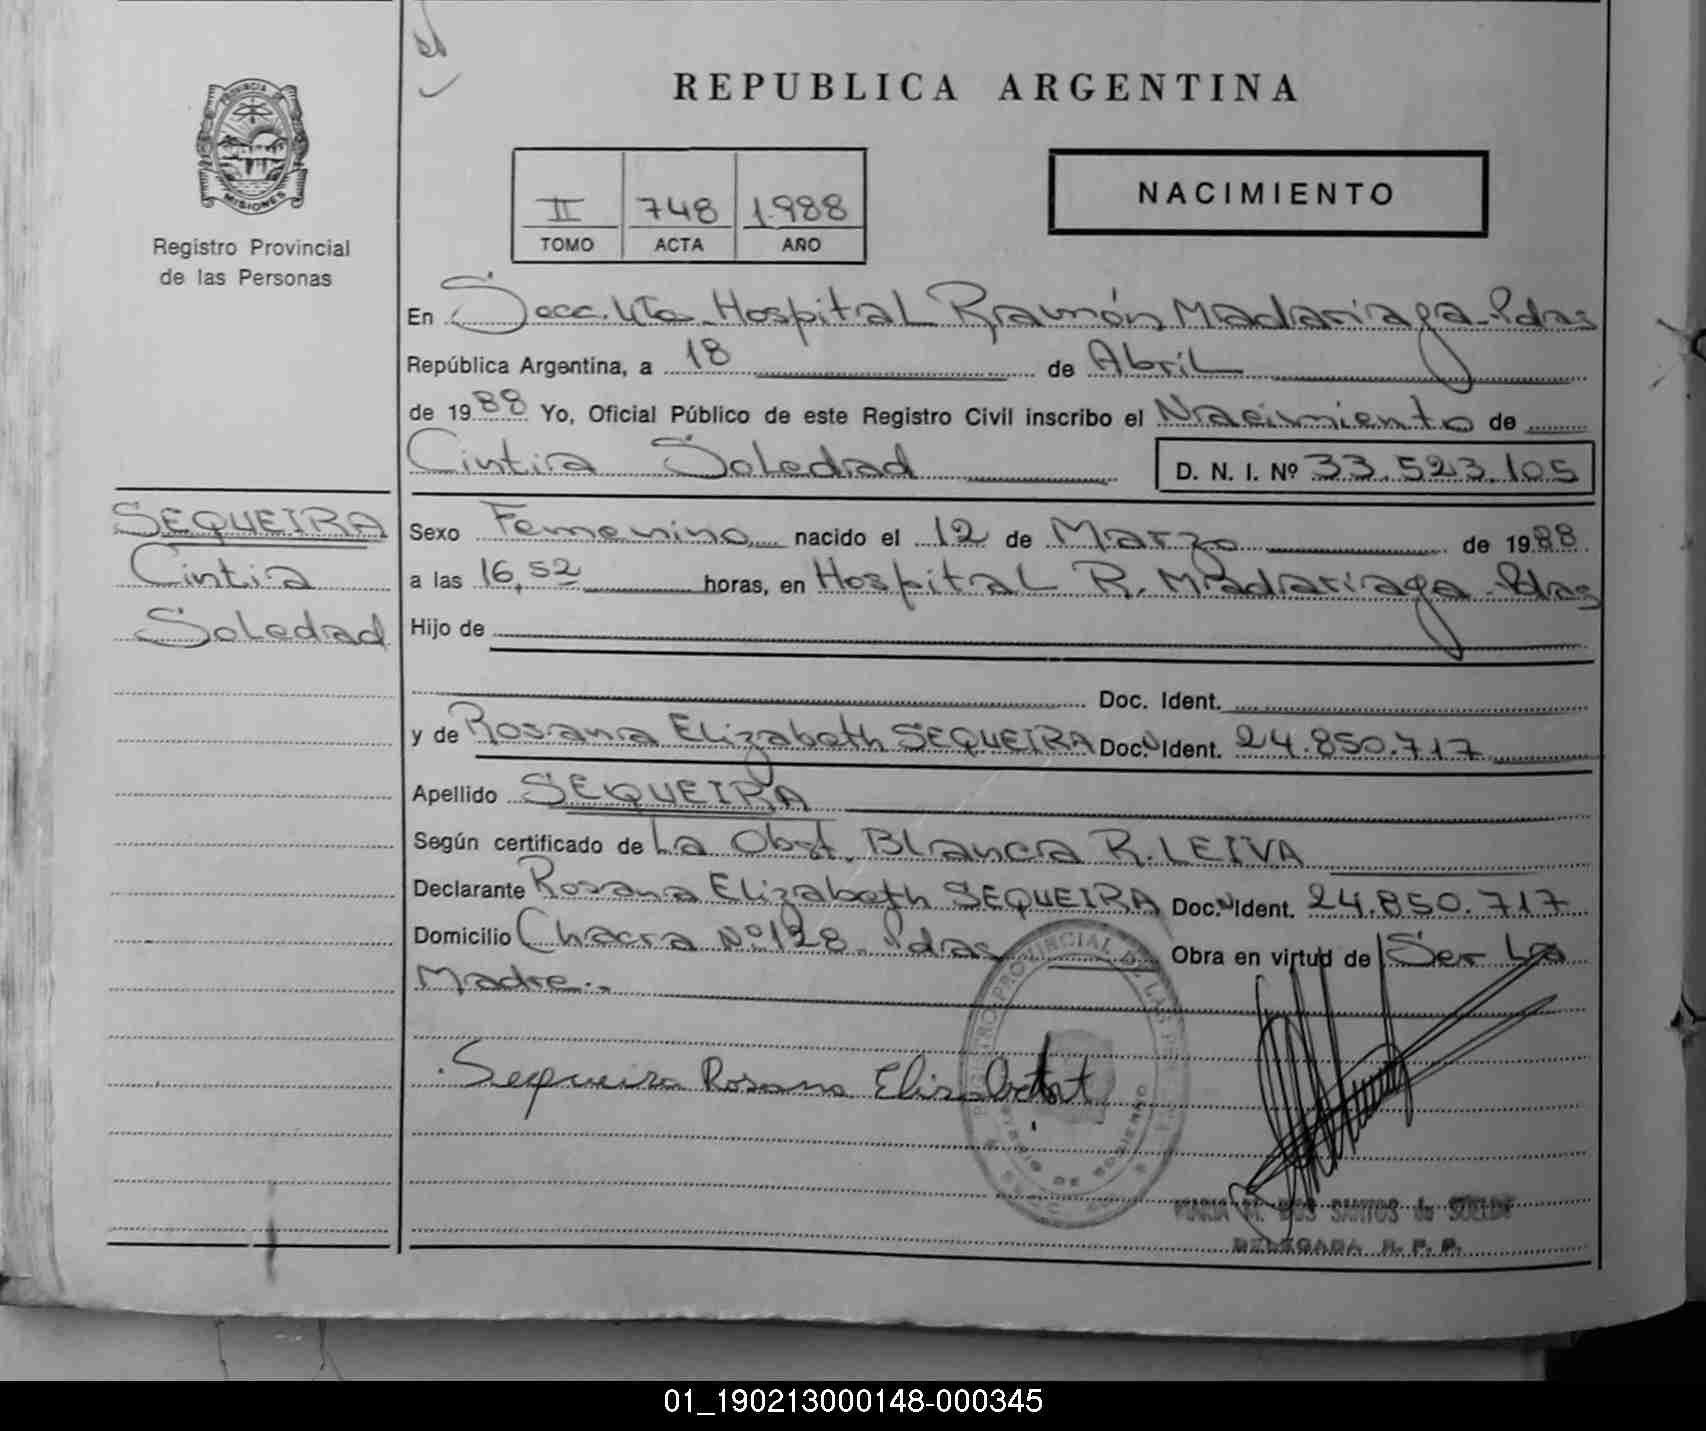 REPUBLICA ARGENTINA
PROVINCIA DE
MISIONES
Registro Provincial
de las Personas
II 748 1.988
TOMO ACTA AÑO
NACIMIENTO
En Secc. 4ta. Hospital Ramón Madariaga - Pdas
República Argentina, a 18 de Abril
de 1988 Yo, Oficial Público de este Registro Civil inscribo el Nacimiento de
Cintia Soledad D. N. I. Nº 33.523.105
SEQUEIRA
Cintia
Soledad
Sexo Femenino nacido el 12 de Marzo de 1988
a las 16,52 horas, en Hospital R. Madariaga - Pdas
Hijo de
Doc. Ident.
y de Rosana Elizabeth SEQUEIRA Doc. Ident. 24.850.717
Apellido SEQUEIRA
Según certificado de La Obst. Blanca R. LEIVA
Declarante Rosana Elizabeth SEQUEIRA Doc. Ident. 24.850.717
Domicilio Chacra Nº 128 - Pdas Obra en virtud de Ser La
Madre.-
Sequeira Rosana Elisabet
MARIA M. DOS SANTOS de
DELEGADA R. P. P.
01_190213000148-000345